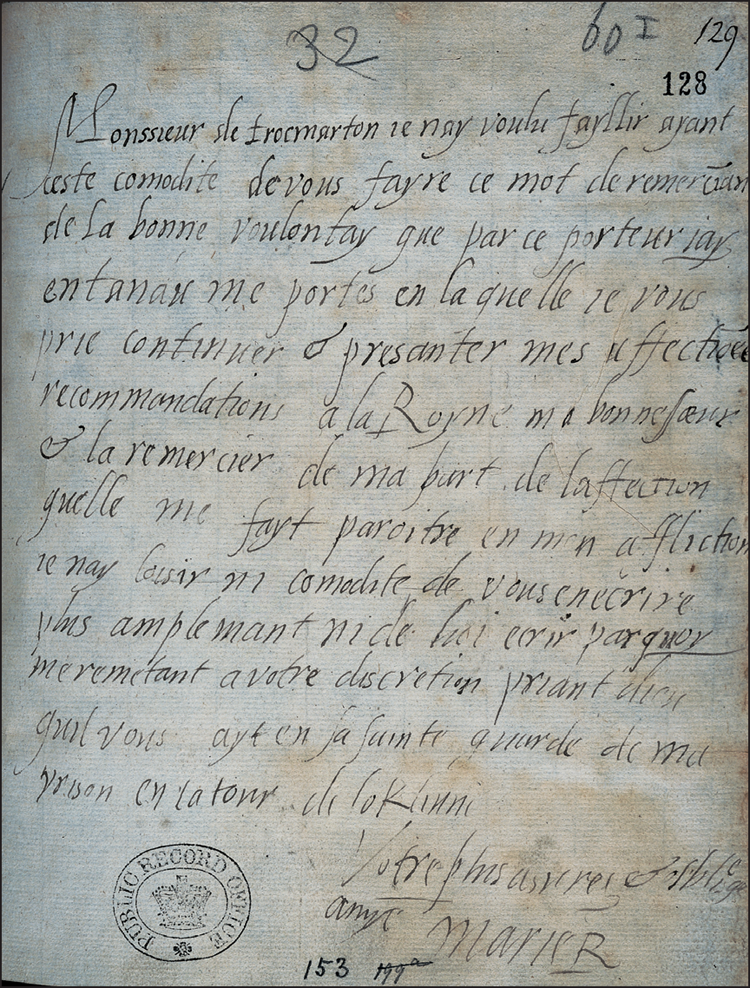 32
60 I
129
128
Monssieur de trocmarton ie nay voulu fayllir ayant
ceste comodite de vous fayre ce mot de remercian
de la bonne voulontay que par ce porteur iay
entandu me portes en la quelle ie vous
prie continuer & presanter mes affectionees
recommandations a la Royne ma bonne sœur
& la remercier de ma part de laffection
quelle me fayt paroitre en mon affliction
ie nay loisir ni comodite de vous enecrire
plus amplemant ni de lui ecrir par quoy
me remetant a votre discretion priant dieu
quil vous ayt en sa sainte guarde de ma
prison en la tour de lokliuin
Votre plus asurees & oblige
amye Marie R
PUBLIC RECORD OFFICE
153 199a